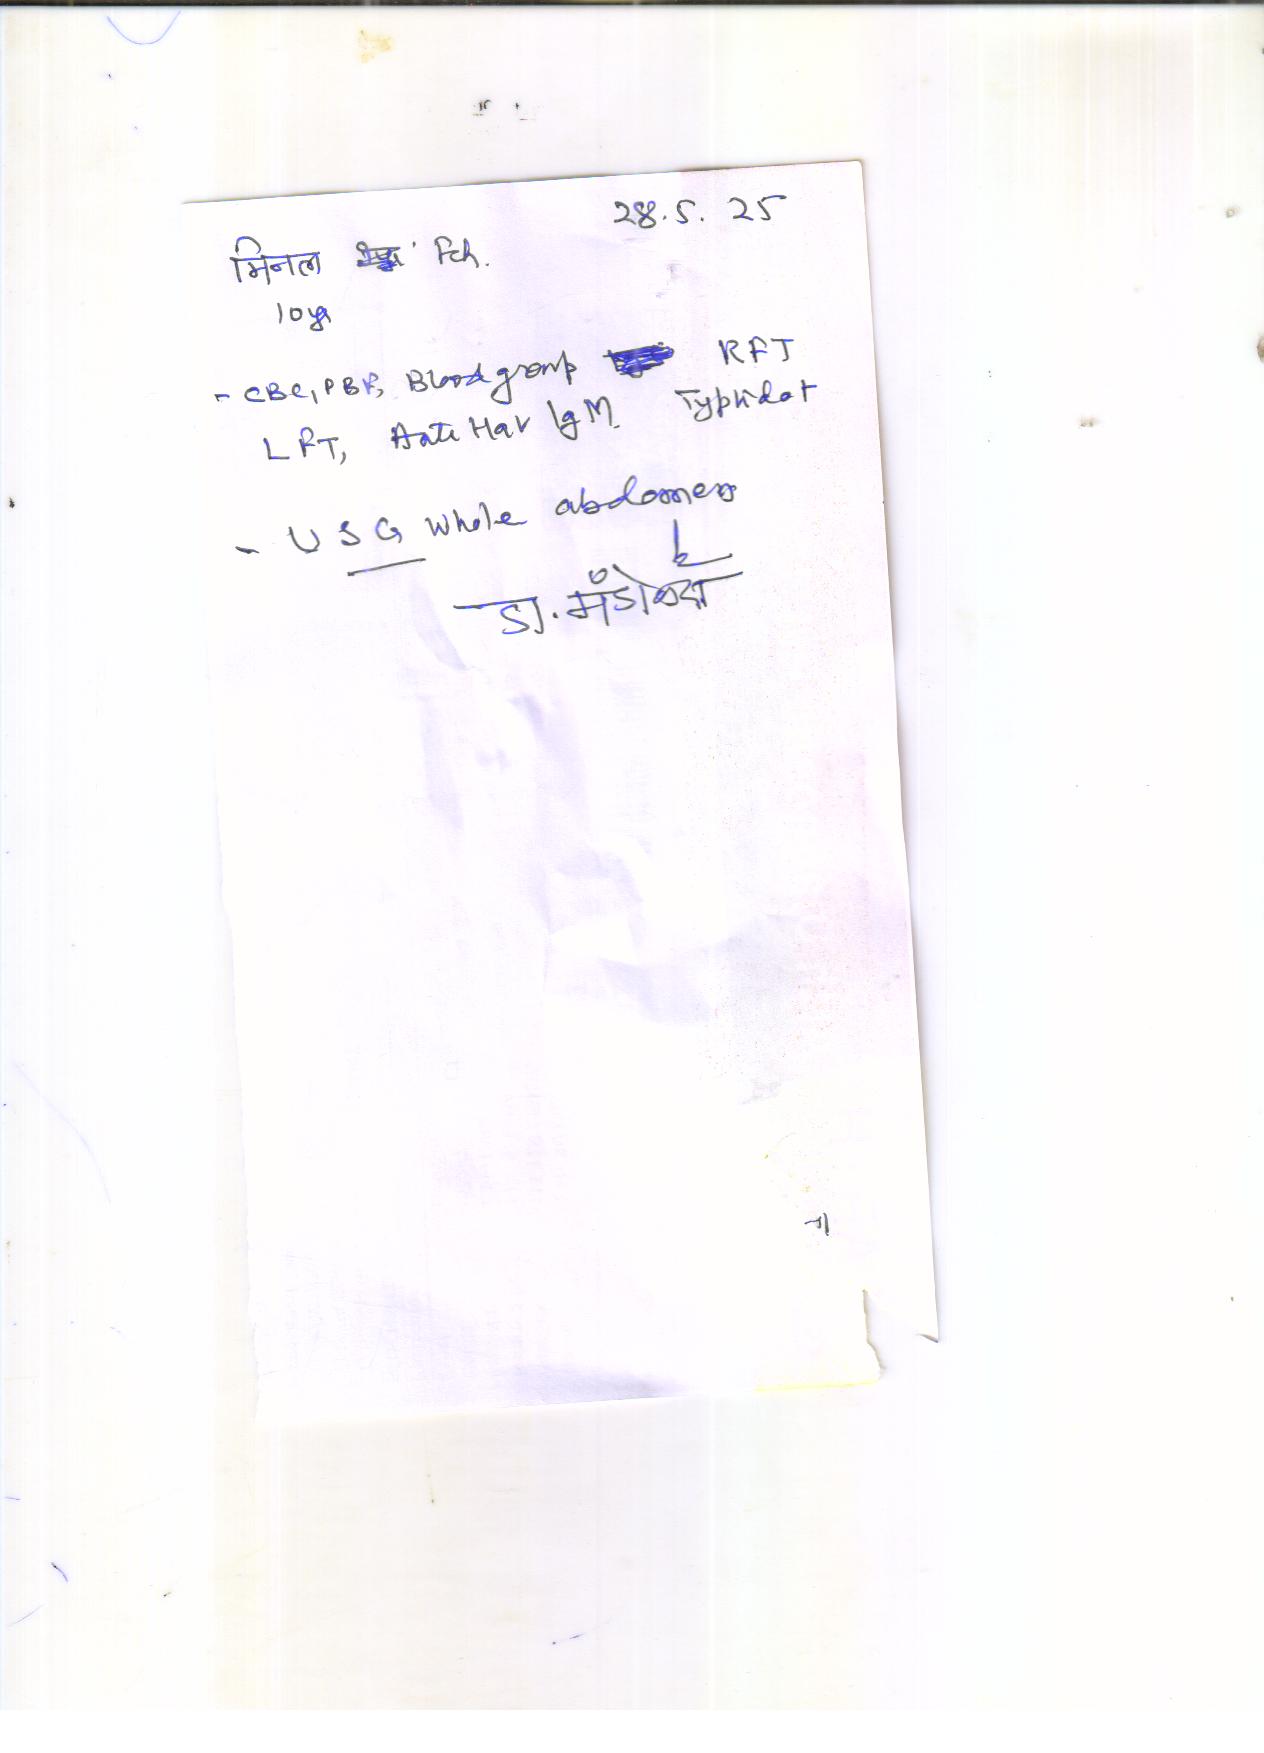 28.5.25
मिनल Fch.
10yr
- CBC, PBF, Blood group RFT
LFT, Anti Hav IgM Typhidot
- USG whole abdomen
डा. मंडोवरा